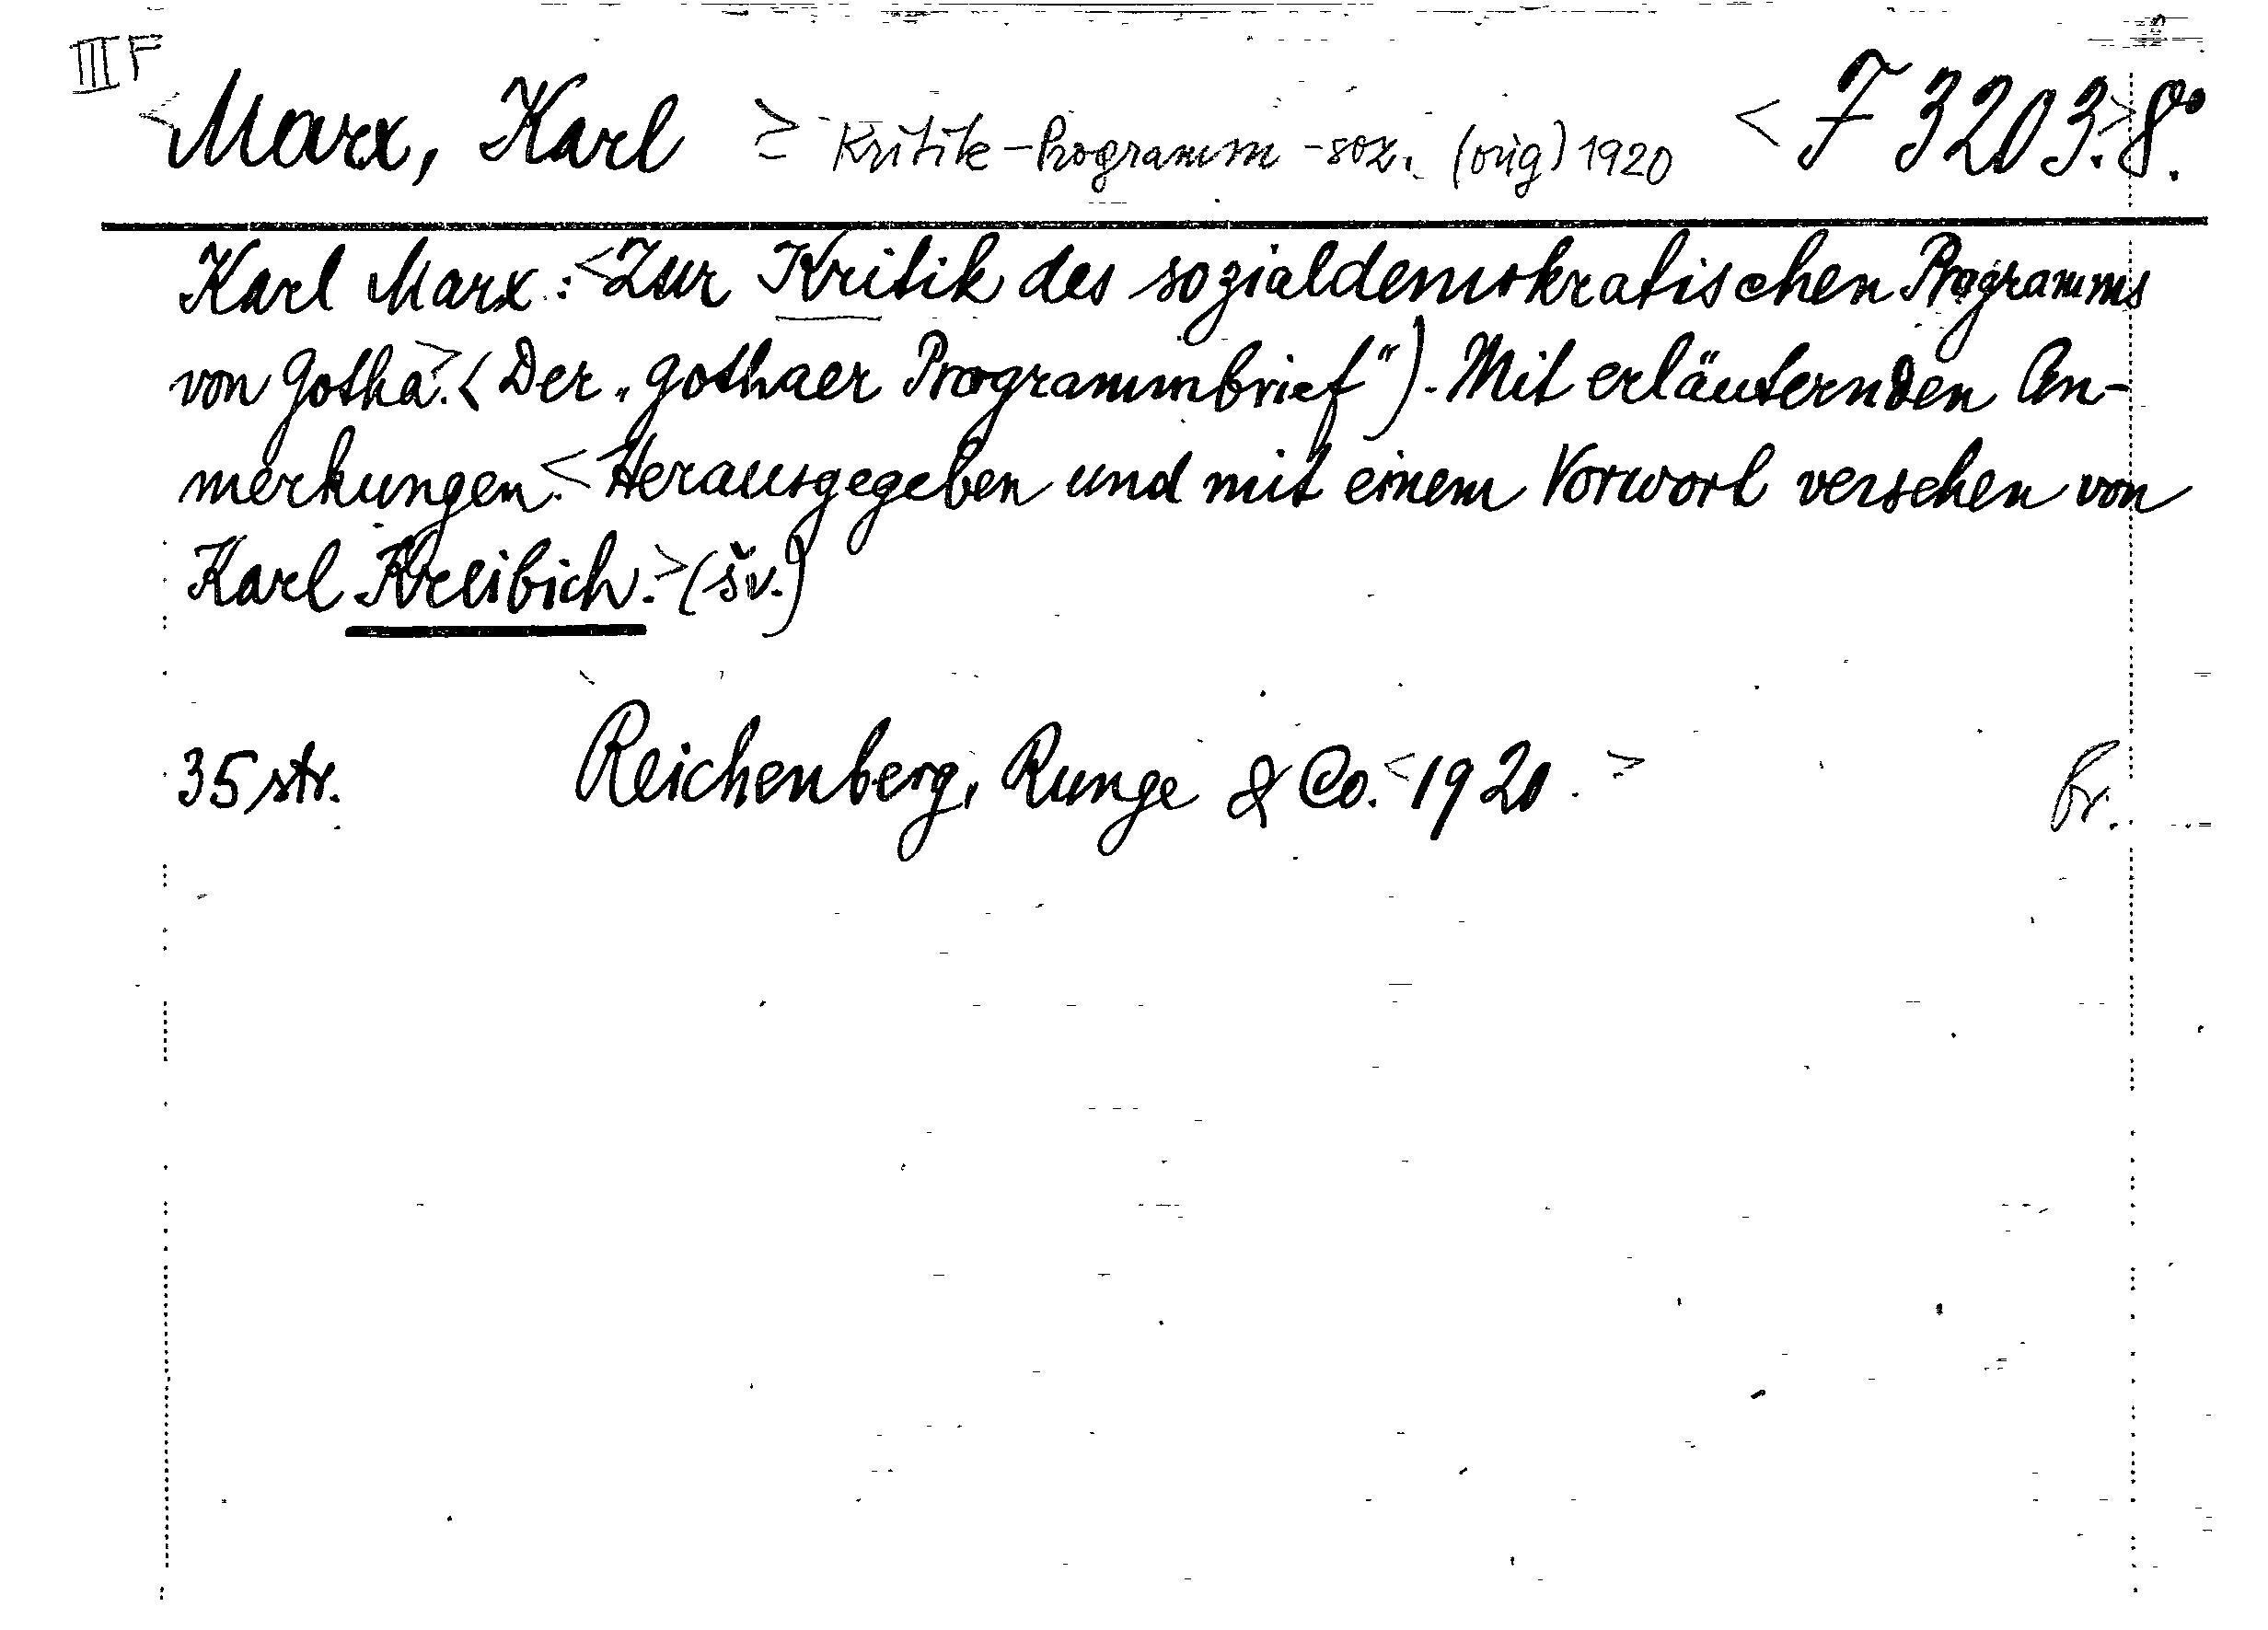 III F
<Marx, Karl > Kritik-Programm-soz. (orig) 1920 <F 3203.>8°.
Karl Marx: <Zur Kritik des sozialdemokratischen Programms
von Gotha.> (Der „gothaer Programmbrief“). Mit erläuternden An-
merkungen. <Herausgegeben und mit einem Vorwort versehen von
Karl Kreibich.> (šv.)
35 str. Reichenberg, Runge & Co. <1920.> Br.